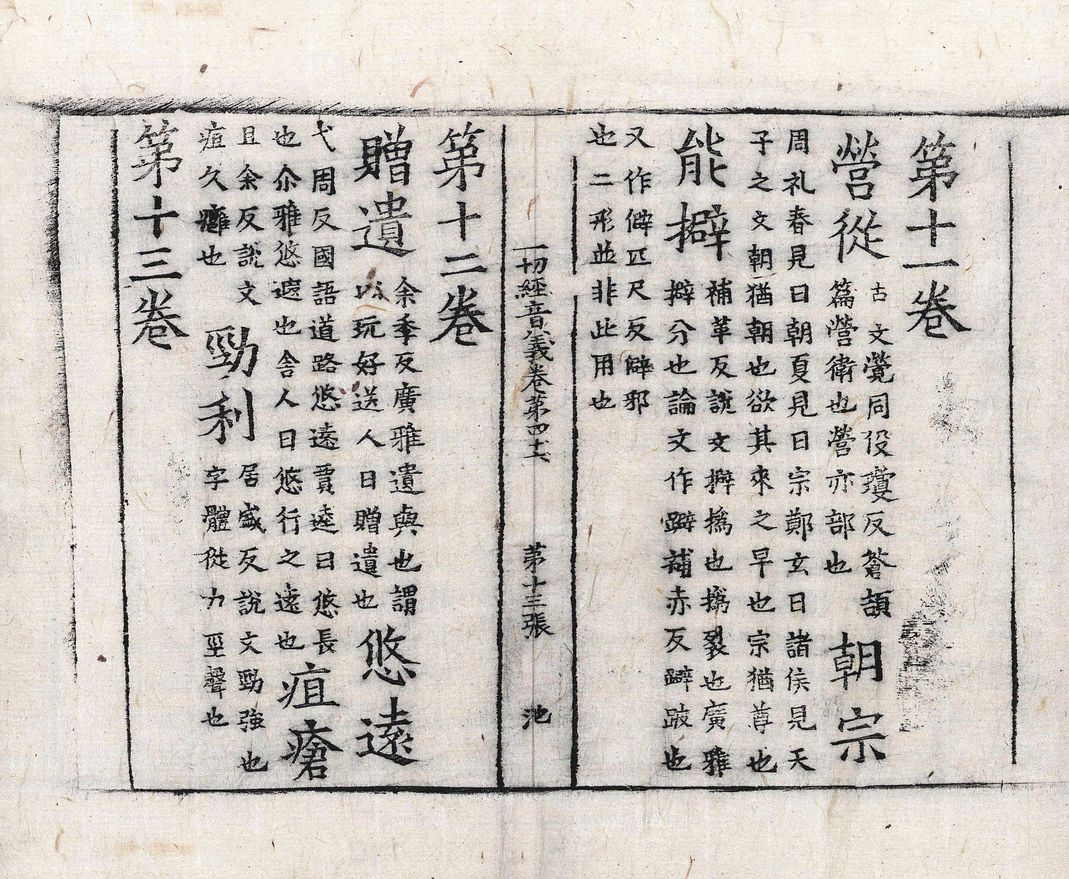 第十一卷
營從 古文覮同役瓊反蒼頡
篇營衛也營亦部也 朝宗
周礼春見曰朝夏見曰宗鄭玄曰諸侯見天
子之文朝猶朝也欲其來之早也宗猶尊也
能擗 補革反說文擗撝也撝裂也廣雅
擗分也論文作躃補赤反躃跛也
又作僻匹尺反僻邪
也二形並非此用也
一切經音義卷第四十六 第十三張 池
第十二卷
贈遺 余季反廣雅遺與也謂
以玩好送人曰贈遺也 悠遠
弋周反國語道路悠遠賈逵曰悠長
也尒雅悠遠也舍人曰悠行之遠也 疽瘡
且余反說文
疽久癰也 勁利 居盛反說文勁強也
字體從力巠聲也
第十三卷